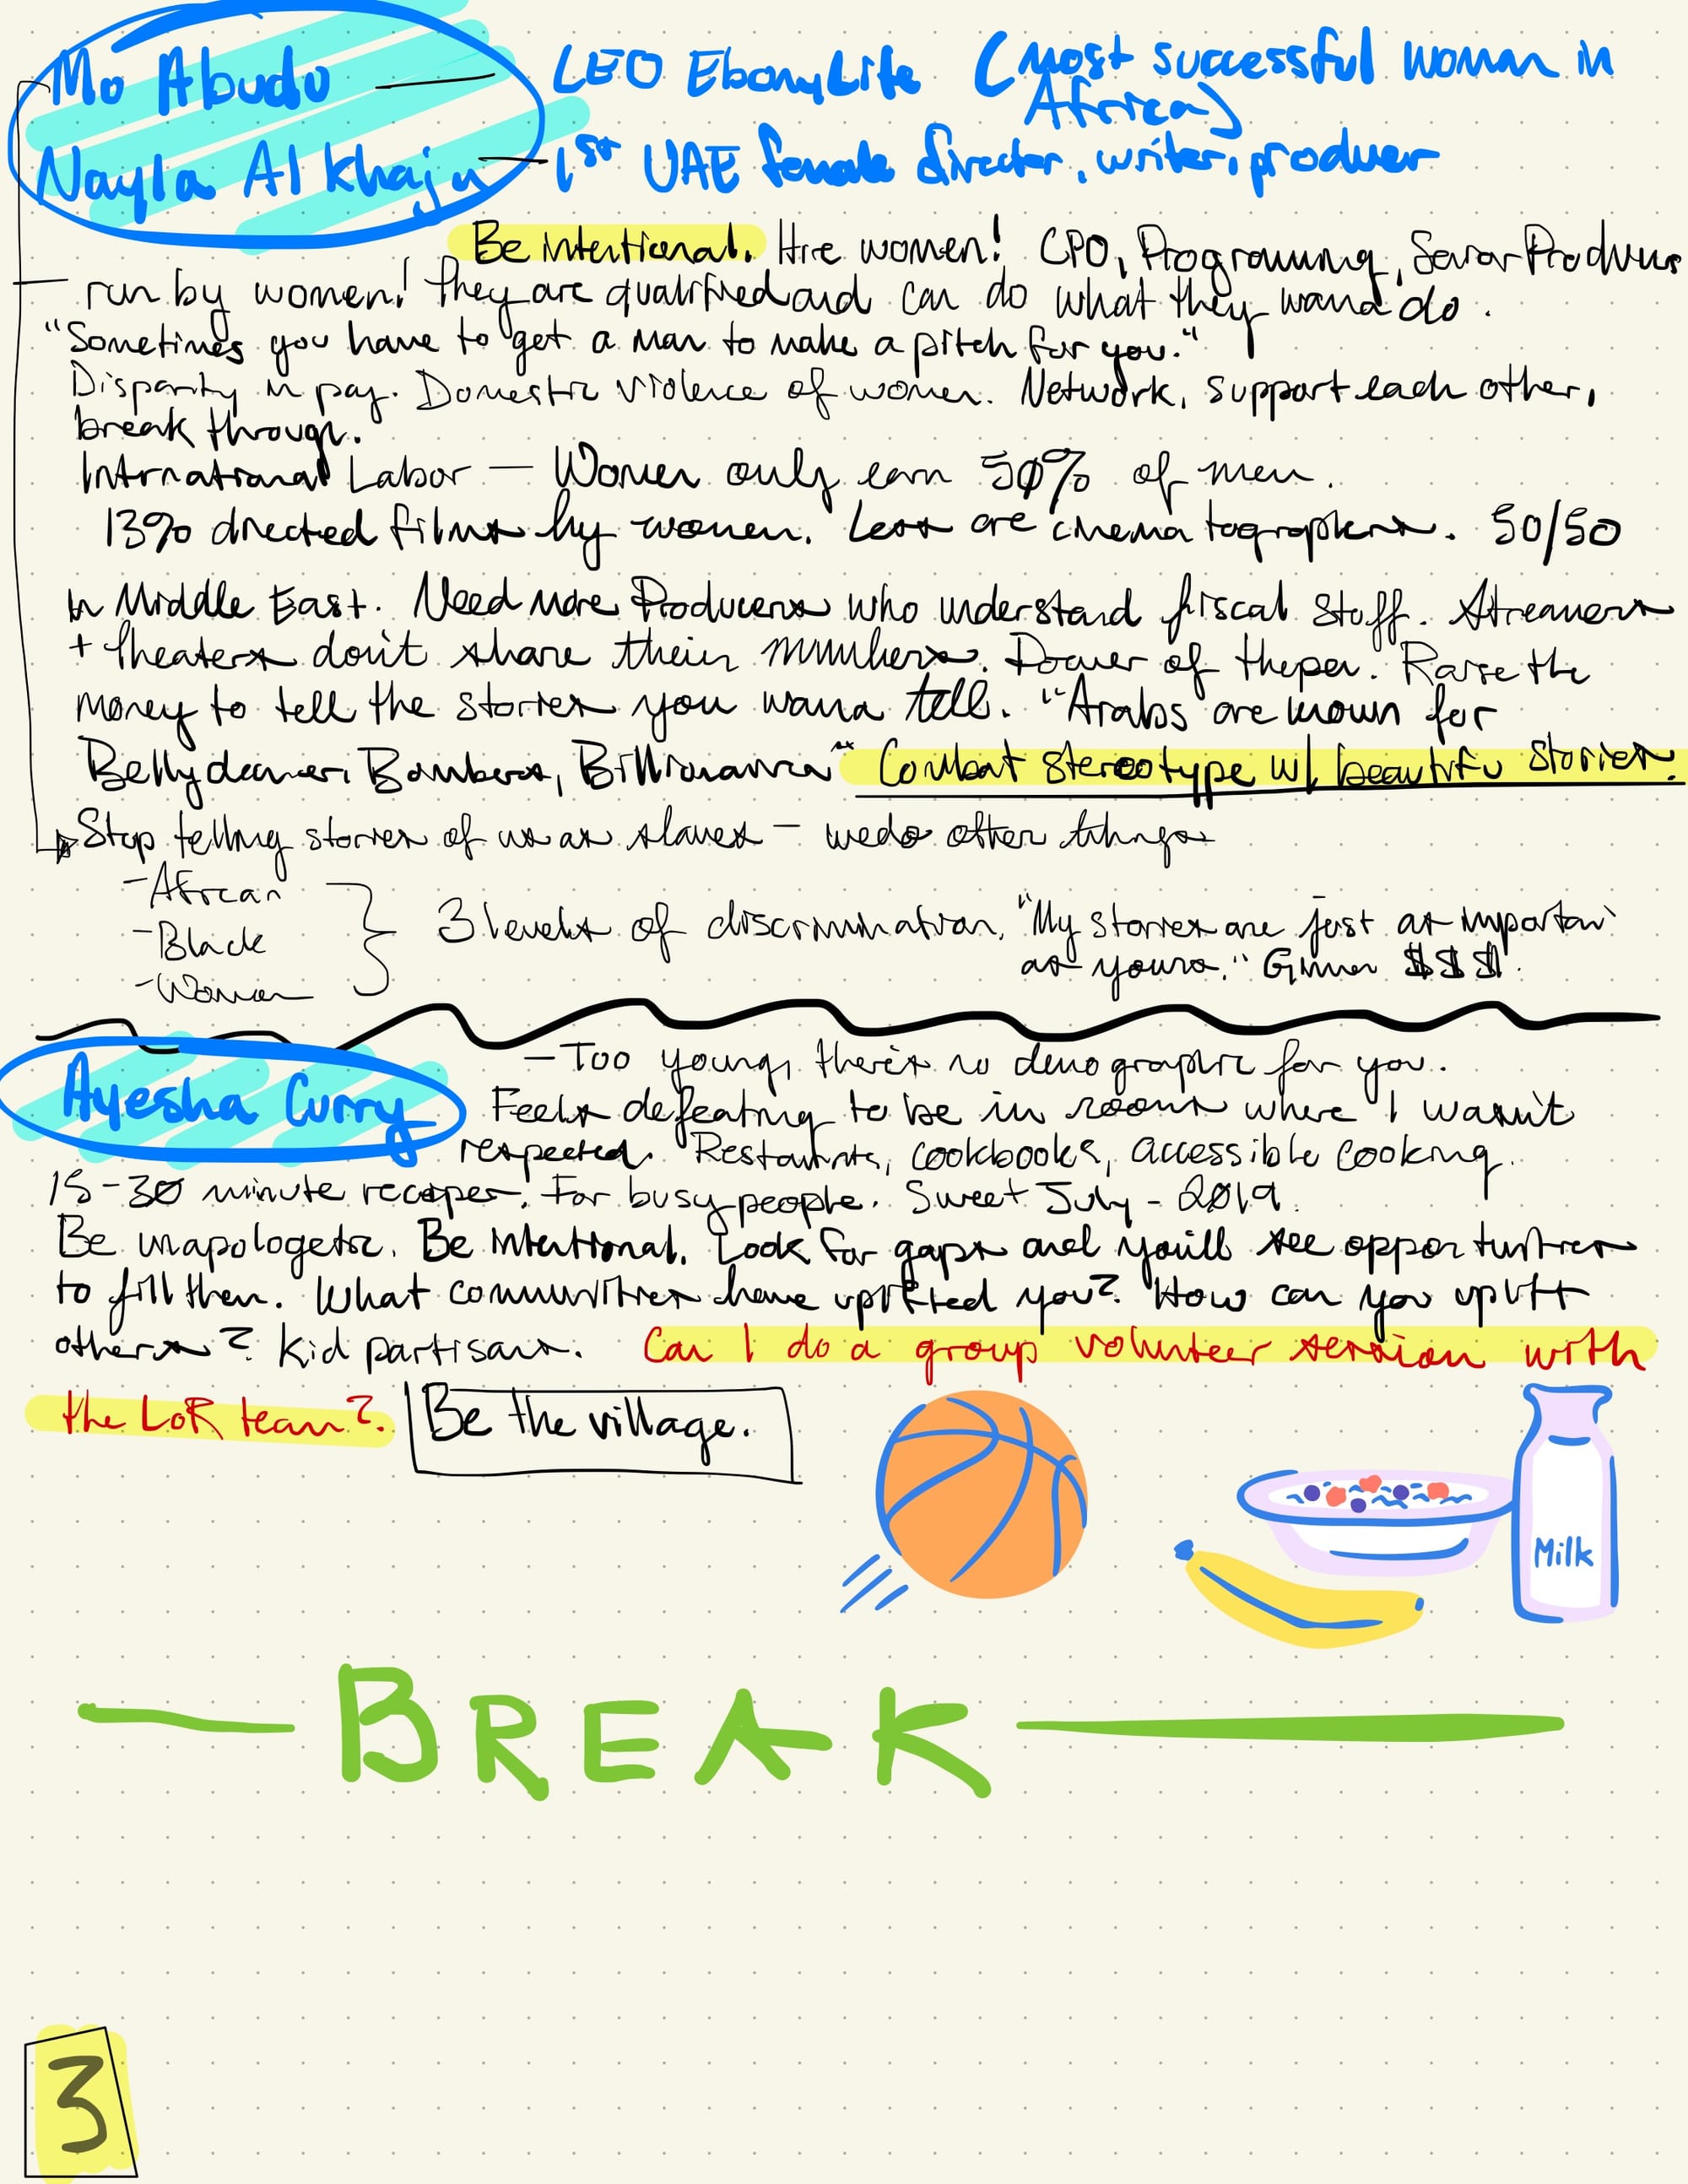 Mo Abudu — CEO EbonyLife (most successful woman in
Africa)
Nayla Al Khaja — 1st UAE female director, writer, producer
Be intentional. Hire women! CPO, Programming, Senior Producers
run by women! They are qualified and can do what they wana do.
"Sometimes you have to get a man to make a pitch for you."
Disparity in pay. Domestic violence of women. Network, support each other,
break through.
International Labor — Women only earn 50% of men.
13% directed films by women. Less are cinematographers. 50/50
in Middle East. Need more Producers who understand fiscal stuff. Streamers
+ theaters don't share their numbers. Power of the pen. Raise the
money to tell the stories you wana tell. "Arabs are known for
Bellydancer, Bombers, Billionaires" Combat stereotype w/ beautiful stories.
Stop telling stories of us as slaves – we do other things
- African
- Black
- Woman
3 levels of discrimination. "My stories are just as important
as yours." Gimme $$$.
Ayesha Curry
— Too young, there's no demographic for you.
Feels defeating to be in rooms where I wasn't
respected. Restaurants, cookbooks, accessible cooking.
15-30 minute recipes. For busy people. Sweet July - 2019.
Be unapologetic. Be intentional. Look for gaps and you'll see opportunities
to fill them. What communities have uplifted you? How can you uplift
others? Kid partisans. Can I do a group volunteer session with
the LoR team?
Be the village.
Milk
BREAK
3